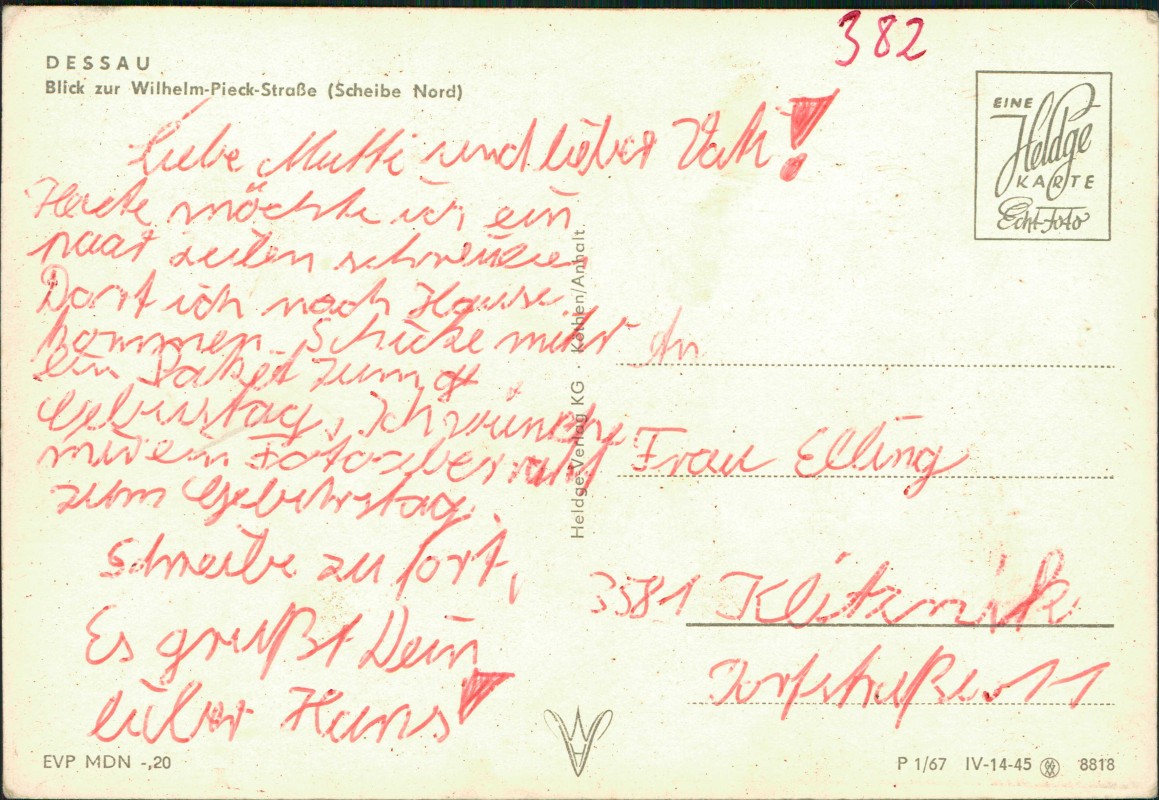 382
DESSAU
Blick zur Wilhelm-Pieck-Straße (Scheibe Nord)
EINE
Heldge
KARTE
Echt-Foto
Liebe Mutti und lieber Vati!
Heute möchte ich ein
paar zeilen schreiben
Darf ich nach Hause
kommen. Schicke mihr
ein Paket zum
Geburstag, Ich wünsche
mir ein
zum Gebuhrstag.
Schreibe zu fort,
Es grußt Dein
lieber Hans!
Heldge-Verlag KG · Köthen/Anhalt.
An
Frau Elling
3581
11
EVP MDN -,20
P 1/67 IV-14-45 8818